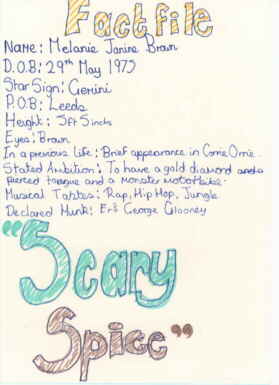 Fact file
Name: Melanie Janine Brown
D.O.B: 29th May 1975
Star Sign: Gemini
P.O.B: Leeds
Height: 5ft 5inch
Eyes: Brown
In a previous life: Brief appearance in Corrie.
Stated Ambition: To have a gold diamond and a
pierced tongue and a monster motorbike.
Musical Tastes: Rap, Hip Hop, Jungle
Declared Hunk: Er's George Clooney
"Scary
Spice"